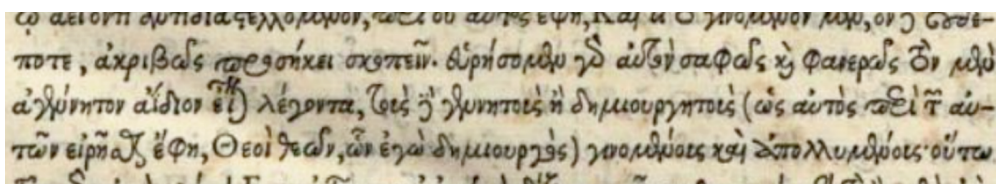 ῳ ἀεὶ ὄντι ἀντιδιαστελλόμενον, περὶ οὗ αὐτὸς ἔφη, Καὶ τὸ γινόμενον μὲν, ὂν δὲ οὐδέ-
ποτε, ἀκριβῶς προσήκει σκοπεῖν. εὑρήσομεν γὰρ αὐτὸν σαφῶς καὶ φανερῶς τὸν μὲν
ἀγέννητον ἀΐδιον εἶναι λέγοντα, τοῖς δὲ γεννητοῖς ἢ δημιουργητοῖς (ὡς αὐτὸς περὶ τῶν αὐ-
τῶν εἰρῆσθαι ἔφη, Θεοὶ θεῶν, ὧν ἐγὼ δημιουργὸς) γινομένοις καὶ ἀπολλυμένοις· οὕτω